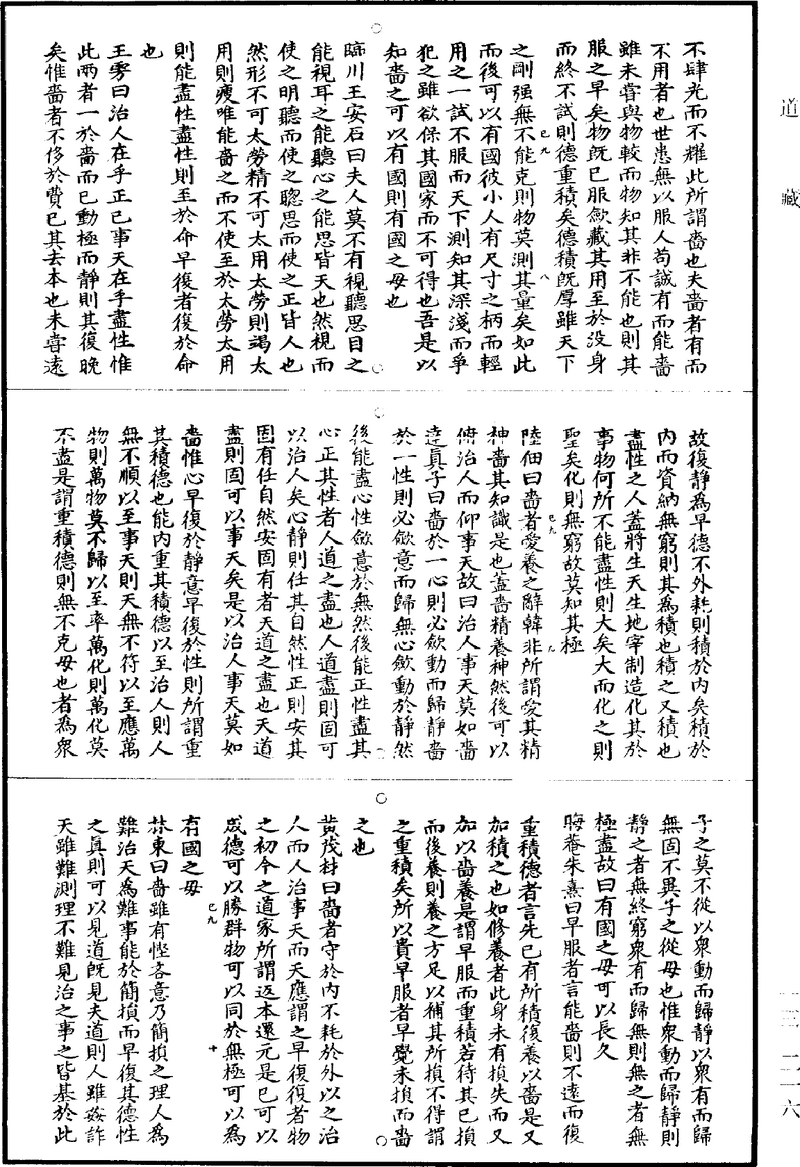 道藏
不肆光而不耀此所謂嗇也夫嗇者有而
不用者也世患無以服人苟誠有而能嗇
雖未嘗與物較而物知其非不能也則其
服之早矣物既已服斂藏其用至於没身
而終不試則德重積矣德積既厚雖天下
之剛强無不能克則物莫測其量矣如此
而後可以有國彼小人有尺寸之柄而輕
用之一試不服而天下測知其深淺而爭
犯之雖欲保其國家而不可得也吾是以
知嗇之可以有國則有國之母也
臨川王安石曰夫人莫不有視聽思目之
能視耳之能聽心之能思皆天也然視而
使之明聽而使之聦思而使之正皆人也
然形不可太勞精不可太用太勞則竭太
用則瘦唯能嗇之而不使至於太勞太用
則能盡性盡性則至於命早復者復於命
也
王雱曰治人在乎正已事天在乎盡性惟
此兩者一於嗇而已動極而靜則其復晚
矣惟嗇者不侈於費已其去本也未甞遠
已九
八
故復靜為早德不外耗則積於内矣積於
内而資納無窮則其為積也積之又積也
盡性之人蓋將生天生地宰制造化其於
事物何所不能盡性則大矣大而化之則
聖矣化則無窮故莫知其極
陸佃曰嗇者愛養之辭韓非所謂愛其精
神嗇其知識是也蓋嗇精養神然後可以
俯治人而仰事天故曰治人事天莫如嗇
達真子曰嗇於一心則必斂動而歸靜嗇
於一性則必斂意而歸無心斂動於靜然
後能盡心性斂意於無然後能正性盡其
心正其性者人道之盡也人道盡則固可
以治人矣心靜則任其自然性正則安其
固有任自然安固有者天道之盡也天道
盡則固可以事天矣是以治人事天莫如
嗇惟心早復於靜意早復於性則所謂重
其積德也能内重其積德以至治人則人
無不順以至事天則天無不符以至應萬
物則萬物莫不歸以至率萬化則萬化莫
不盡是謂重積德則無不克母也者為衆
已九
九
子之莫不從以衆動而歸靜以衆有而歸
無固不異子之從母也惟衆動而歸靜則
靜之者無終窮衆有而歸無則無之者無
極盡故曰有國之母可以長久
晦菴朱熹曰早服者言能嗇則不遠而復
重積德者言先已有所積復養以嗇是又
加積之也如修養者此身未有損失而又
加以嗇養是謂早服而重積若待其已損
而後養則養之方足以補其所損不得謂
之重積矣所以貴早服者早覺未損而嗇
之也
黃茂材曰嗇者守於内不耗於外以之治
人而人治事天而天應謂之早復復者物
之初今之道家所謂返本還元是已可以
成德可以勝群物可以同於無極可以為
有國之母
林東曰嗇雖有慳吝意乃簡損之理人為
難治天為難事能於簡損而早復其德性
之真則可以見道既見夫道則人雖姦詐
天雖難測理不難見治之事之皆基於此
已九
十
一三—二一六